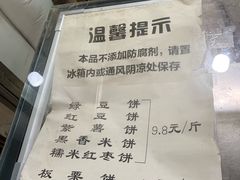 温馨提示
本品不添加防腐剂，请置
冰箱内或通风阴凉处保存
绿豆饼
红豆饼
紫薯饼 9.8元/斤
黑香米饼
糯米红枣饼
板栗饼